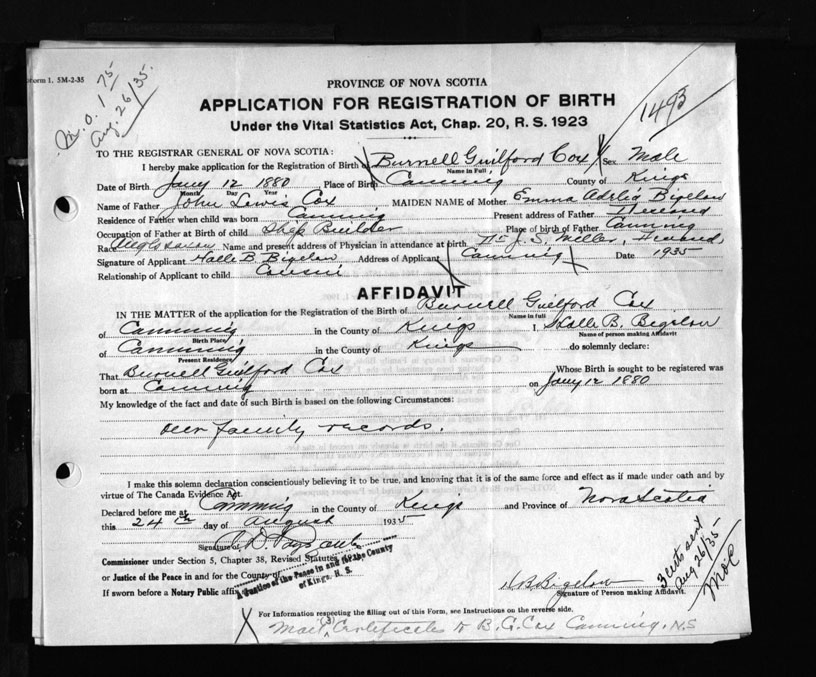 Form 1. 5M-2-35
M.O. 1 75
Aug. 26/35.
1493
PROVINCE OF NOVA SCOTIA
APPLICATION FOR REGISTRATION OF BIRTH
Under the Vital Statistics Act, Chap. 20, R. S. 1923
TO THE REGISTRAR GENERAL OF NOVA SCOTIA:
I hereby make application for the Registration of Birth of Burnell Guilford Cox Sex Male
Name in Full
Date of Birth Jany 12 1880 Place of Birth Canning County of Kings
Month Day Year
Name of Father John Lewis Cox MAIDEN NAME of Mother Emma Adelia Bigelow
Residence of Father when child was born Canning Present address of Father
Occupation of Father at Birth of child Ship Builder Place of birth of Father Canning
Race Anglo saxon Name and present address of Physician in attendance at birth J. S. Miller,
Signature of Applicant Halle B. Bigelow Address of Applicant Canning Date 1935
Relationship of Applicant to child Cousin
AFFIDAVIT
IN THE MATTER of the application for the Registration of Birth of Burnell Guilford Cox
Name in full
of Canning in the County of Kings I, Halle B. Bigelow
Birth Place Name of person making Affidavit
of Canning in the County of Kings do solemnly declare:
Present Residence
That Burnell Guilford Cox Whose Birth is sought to be registered was
born at Canning on Jany 12 1880
My knowledge of the fact and date of such Birth is based on the following Circumstances:
Our family records.
I make this solemn declaration conscientiously believing it to be true, and knowing that it is of the same force and effect as if made under oath and by
virtue of The Canada Evidence Act.
Declared before me at Canning in the County of Kings and Province of Nova Scotia
this 24th day of August 1935
Signature of
Commissioner under Section 5, Chapter 38, Revised Statutes,
or Justice of the Peace in and for the County of
A Justice of the Peace in and for the County
of Kings, N. S.
If sworn before a Notary Public affix
H B Bigelow
Signature of Person making Affidavit.
3 certs sent
Aug 26/35
For Information respecting the filling out of this Form, see Instructions on the reverse side.
X Mail (3) Certificates to B. G. Cox Canning, N.S